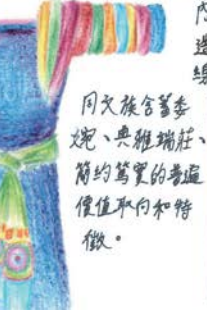 内
造
线
同文族含蓄委
婉、典雅端莊、
简约笃实的普遍
價值取向和特
徵。